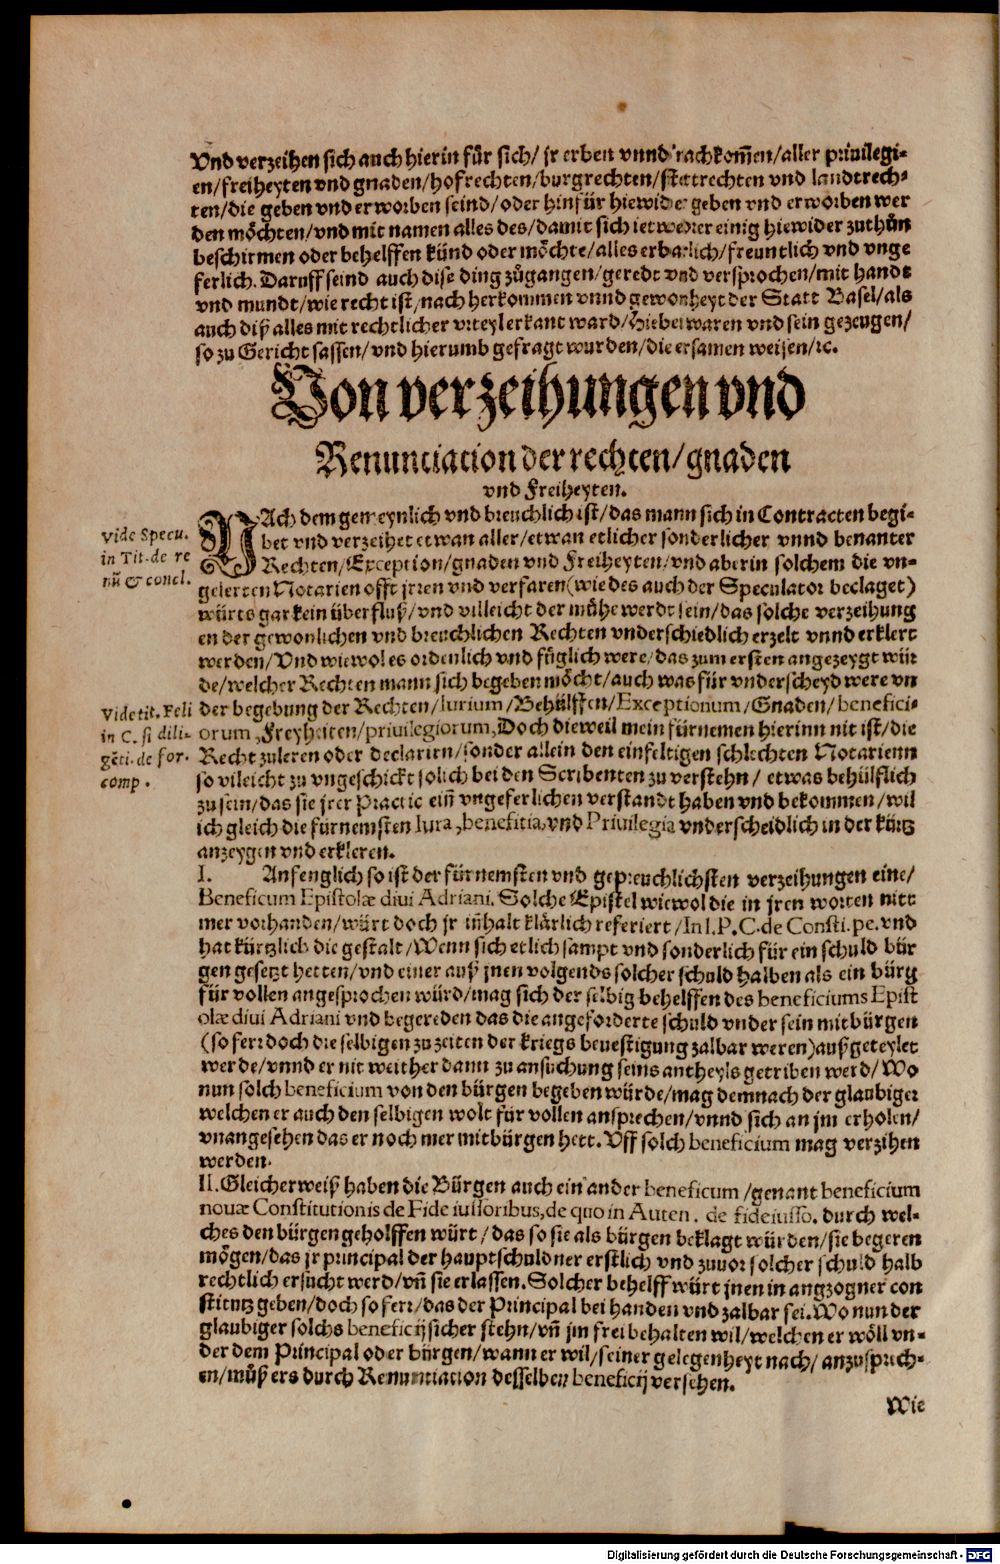 Vnd verzeihen sich auch hierin für sich/ jr erben vnnd nachkom̃en/ aller priuilegi-
en/ freiheyten vnd gnaden/ hofrechten/ burgrechten/ stettrechten vnd landtrech-
ten/ die geben vnd erworben seind/ oder hinfür hiewider geben vnd erworben wer
den möchten/ vnd mit namen alles des/ damit sich ietweder einig hiewider zuthůn
beschirmen oder behelffen künd oder möchte/ alles erbarlich/ freuntlich vnd vnge
ferlich. Daruff seind auch dise ding zůgangen/ geredt vnd versprochen/ mit handt
vnd mundt/ wie recht ist/ nach herkommen vnnd gewonheyt der Statt Basel/ als
auch diß alles mit rechtlicher vrteyl erkant ward/ Hiebei waren vnd sein gezeugen/
so zu Gericht sassen/ vnd hierumb gefragt wurden/ die ersamen weisen/ ꝛc.
Von verzeihungen vnd
Renunciacion der rechten/ gnaden
vnd Freiheyten.
NAch dem gemeynlich vnd breuchlich ist/ das mann sich in Contracten begi-
bet vnd verzeihet etwan aller/ etwan etlicher sonderlicher vnnd benanter
Rechten/ Exception/ gnaden vnd Freiheyten/ vnd aber in solchem die vn-
gelerten Notarien offt jrren vnd verfaren (wie des auch der Speculator beclaget)
würts gar kein überfluß/ vnd villeicht der mühe werdt sein/ das solche verzeihung
en der gewonlichen vnd breuchlichen Rechten vnderschiedlich erzelt vnnd erklert
werden/ Vnd wiewol es ordenlich vnd füglich were/ das zum ersten angezeygt wür
de/ welcher Rechten mann sich begeben möcht/ auch was für vnderscheyd were vn
der begebung der Rechten/ Iurium/ Behülffen/ Exceptionum/ Gnaden/ benefici-
orum, Freyheiten/ priuilegiorum, Doch dieweil mein fürnemen hierinn nit ist/ die
Recht zuleren oder declarirn/ sonder allein den einfeltigen schlechten Notarienn
so vileicht zu vngeschickt solich bei den Scribenten zu verstehn/ etwas behülflich
zu sein/ das sie jrer Practic ein̄ vngeferlichen verstandt haben vnd bekommen/ wil
ich gleich die fürnemsten Iura, benefitia, vnd Priuilegia vnderscheidlich in der kürtz
anzeygen vnd erkleren.
vide Specu.
in Tit. de re
nū & concl.
Vide tit. Feli
in C. si dili-
gēti. de for.
comp.
I. Anfenglich so ist der fürnemsten vnd gepreuchlichsten verzeihungen eine/
Beneficum Epistolæ diui Adriani. Solche Epistel wiewol die in jren worten nim
mer vorhanden/ würt doch jr in̄halt klärlich referiert/ In l. P. C. de Consti. pe. vnd
hat kürtzlich die gestalt/ Wenn sich etlich sampt vnd sonderlich für ein schuld bür
gen gesetzt hetten/ vnd einer auß jnen volgends solcher schuld halben als ein bürg
für vollen angesprochen würd/ mag sich der selbig behelffen des beneficiums Epist
olæ diui Adriani vnd begereden das die angeforderte schuld vnder sein mitbürgen
(so ferr doch die selbigen zu zeiten der kriegs beuestigung zalbar weren) außgeteylet
werde/ vnnd er nit weither dann zu ansuchung seins antheyls getriben werd/ Wo
nun solch beneficium von den bürgen begeben würde/ mag demnach der glaubiger
welchen er auch den selbigen wolt für vollen ansprechen/ vnnd sich an jm erholen/
vnangesehen das er noch mer mitbürgen hett. Vff solch beneficium mag verzihen
werden.
II. Gleicherweiß haben die Bürgen auch ein ander beneficum/ genant beneficium
nouæ Constitutionis de Fide iussoribus, de quo in Auten. de fideiusso. durch wel-
ches den bürgen geholffen würt/ das so sie als bürgen beklagt würden/ sie begeren
mögen/ das jr principal der hauptschuldner erstlich vnd zuuor solcher schuld halb
rechtlich ersucht werd/ vn̄ sie erlassen. Solcher behelff würt jnen in angzogner con
stitutz geben/ doch so ferr/ das der Principal bei handen vnd zalbar sei. Wo nun der
glaubiger solchs beneficij sicher stehn/ vn̄ jm frei behalten wil/ welchen er wöll vn-
der dem Principal oder bürgen/ wann er wil/ seiner gelegenheyt nach/ anzusprech-
en/ můß ers durch Renunciacion desselben beneficij versehen.
Wie
Digitalisierung gefördert durch die Deutsche Forschungsgemeinschaft - DFG